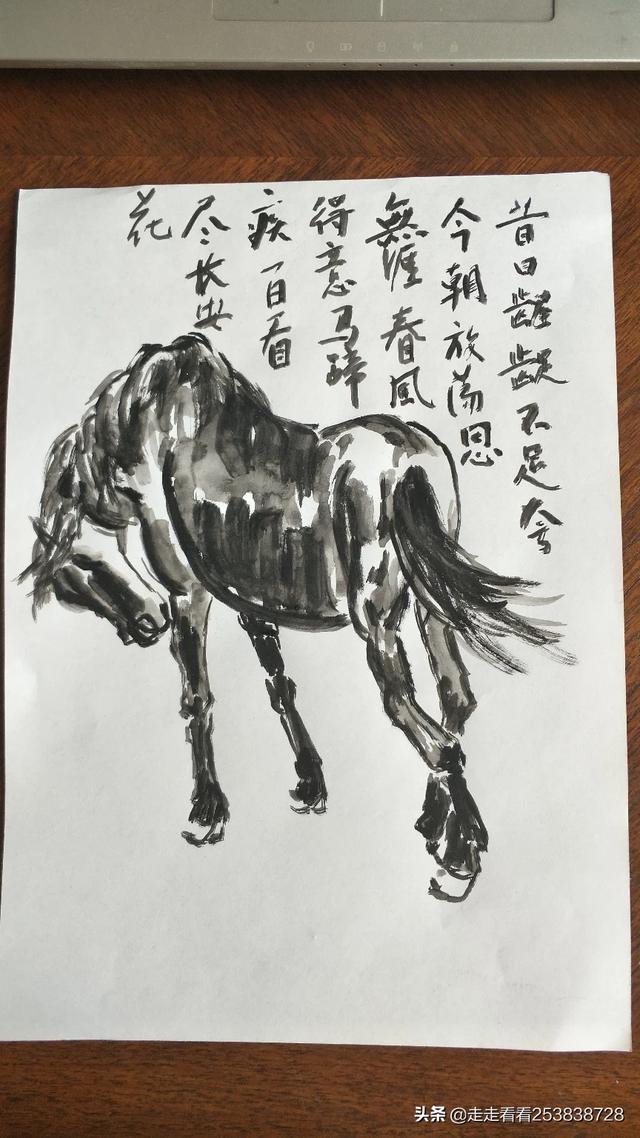 昔日龌龊不足夸
今朝放荡思
無涯春风
得意马蹄
疾一日看
尽长安
花
头条 @走走看看253838728